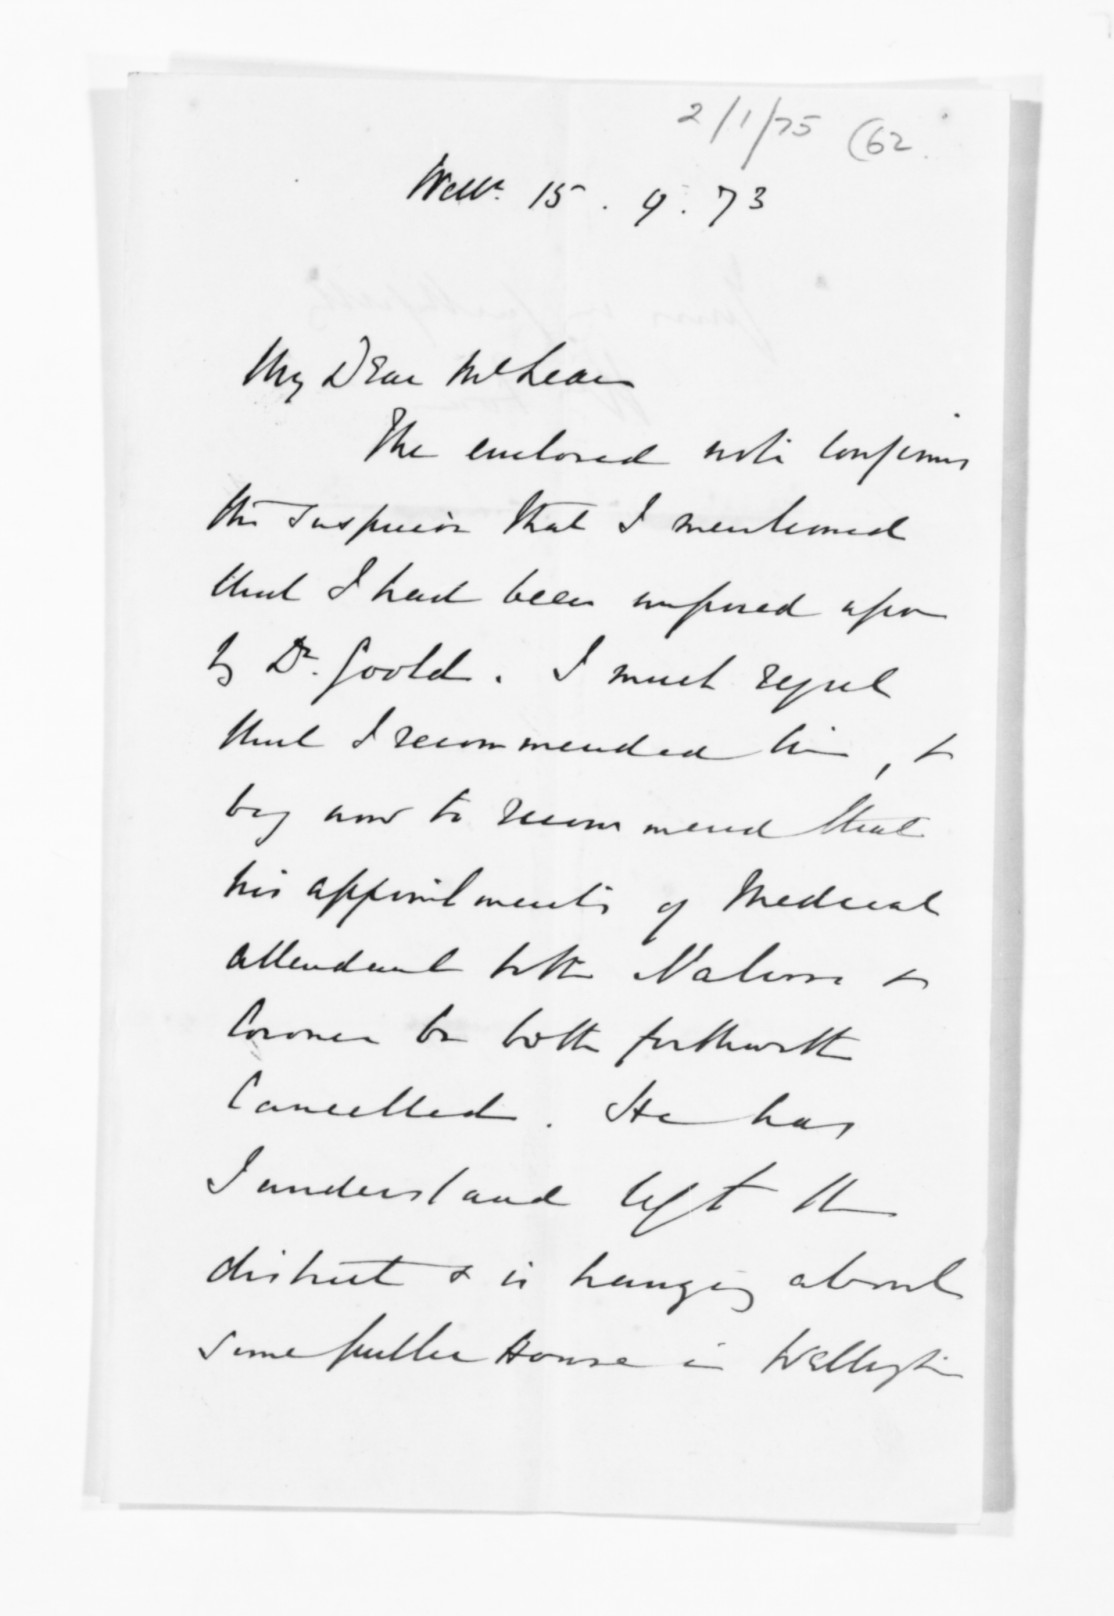 2/1/75 (62
Welln. 15. 9. 73
My Dear McLean
The enclosed note confirms
the suspicion that I mentioned
that I had been imposed upon
by Dr. Goold. I much regret
that I recommended him, &
beg now to recommend that
his appointments of Medical
attendant to the Natives &
Coroner be both forthwith
Cancelled. He has
I understand left the
district & is hanging about
some public House in Wellington